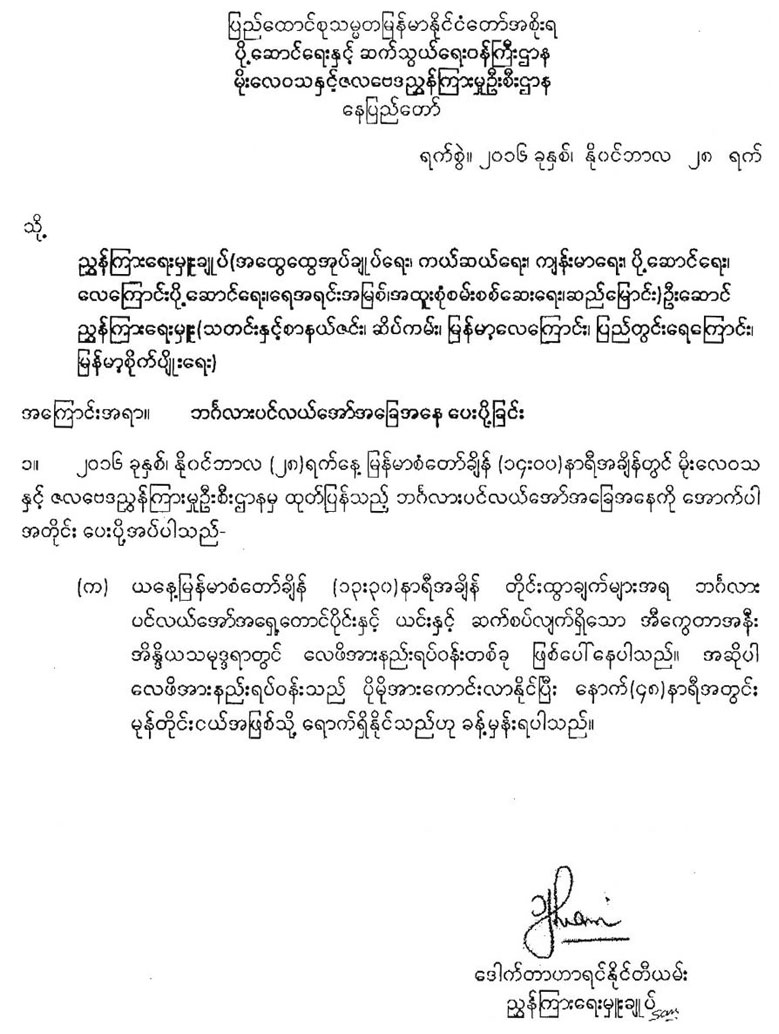 ပြည်ထောင်စုသမ္မတမြန်မာနိုင်ငံတော်အစိုးရ
ပို့ဆောင်ရေးနှင့် ဆက်သွယ်ရေးဝန်ကြီးဌာန
မိုးလေဝသနှင့်ဇလဗေဒညွှန်ကြားမှုဦးစီးဌာန
နေပြည်တော်
ရက်စွဲ။ ၂၀၁၆ ခုနှစ်၊ နိုဝင်ဘာလ ၂၈ ရက်
သို့
ညွှန်ကြားရေးမှူးချုပ်(အထွေထွေအုပ်ချုပ်ရေး၊ ကယ်ဆယ်ရေး၊ ကျန်းမာရေး၊ ပို့ဆောင်ရေး၊
လေကြောင်းပို့ဆောင်ရေး၊ရေအရင်းအမြစ်၊အထူးစုံစမ်းစစ်ဆေးရေး၊ဆည်မြောင်း)ဦးဆောင်
ညွှန်ကြားရေးမှူး(သတင်းနှင့်စာနယ်ဇင်း၊ ဆိပ်ကမ်း၊ မြန်မာ့လေကြောင်း၊ ပြည်တွင်းရေကြောင်း၊
မြန်မာ့စိုက်ပျိုးရေး)
အကြောင်းအရာ။ ဘင်္ဂလားပင်လယ်အော်အခြေအနေ ပေးပို့ခြင်း
၁။ ၂၀၁၆ ခုနှစ်၊ နိုဝင်ဘာလ (၂၈)ရက်နေ့ မြန်မာစံတော်ချိန် (၁၄း၀၀)နာရီအချိန်တွင် မိုးလေဝသ
နှင့် ဇလဗေဒညွှန်ကြားမှုဦးစီးဌာနမှ ထုတ်ပြန်သည့် ဘင်္ဂလားပင်လယ်အော်အခြေအနေကို အောက်ပါ
အတိုင်း ပေးပို့အပ်ပါသည်-
(က) ယနေ့မြန်မာစံတော်ချိန် (၁၃း၃၀)နာရီအချိန် တိုင်းထွာချက်များအရ ဘင်္ဂလား
ပင်လယ်အော်အရှေ့တောင်ပိုင်းနှင့် ယင်းနှင့် ဆက်စပ်လျက်ရှိသော အီကွေတာအနီး
အိန္ဒိယသမုဒ္ဒရာတွင် လေဖိအားနည်းရပ်ဝန်းတစ်ခု ဖြစ်ပေါ်နေပါသည်။ အဆိုပါ
လေဖိအားနည်းရပ်ဝန်းသည် ပိုမိုအားကောင်းလာနိုင်ပြီး နောက်(၄၈)နာရီအတွင်း
မုန်တိုင်းငယ်အဖြစ်သို့ ရောက်ရှိနိုင်သည်ဟု ခန့်မှန်းရပါသည်။
ဒေါက်တာဟာရင်နိုင်တီယမ်း
ညွှန်ကြားရေးမှူးချုပ်